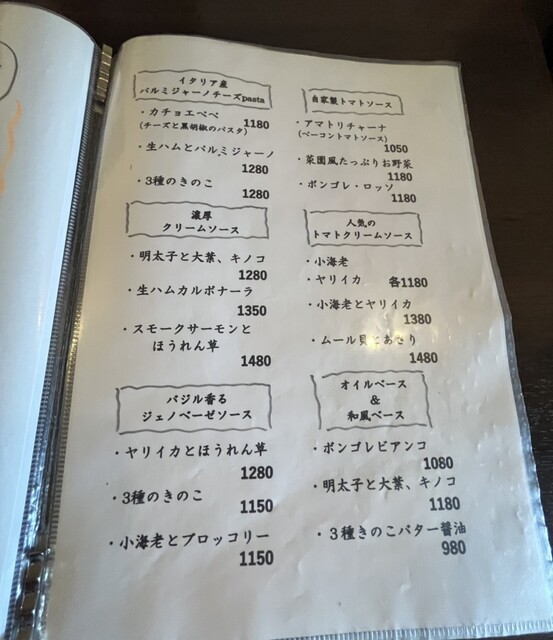 イタリア産
パルミジャーノチーズpasta
・カチョエペペ
(チーズと黒胡椒のパスタ) 1180
・生ハムとパルミジャーノ
1280
・3種のきのこ
1280
濃厚
クリームソース
・明太子と大葉、キノコ
1280
・生ハムカルボナーラ
1350
・スモークサーモンと
ほうれん草
1480
バジル香る
ジェノベーゼソース
・ヤリイカとほうれん草
1280
・3種のきのこ
1150
・小海老とブロッコリー
1150
自家製トマトソース
・アマトリチャーナ
(ベーコントマトソース)
1050
・菜園風たっぷりお野菜
1180
・ボンゴレ・ロッソ
1180
人気の
トマトクリームソース
・小海老
・ヤリイカ 各1180
・小海老とヤリイカ
1380
・ムール貝とあさり
1480
オイルベース
&
和風ベース
・ボンゴレビアンコ
1080
・明太子と大葉、キノコ
1180
・3種きのこバター醤油
980